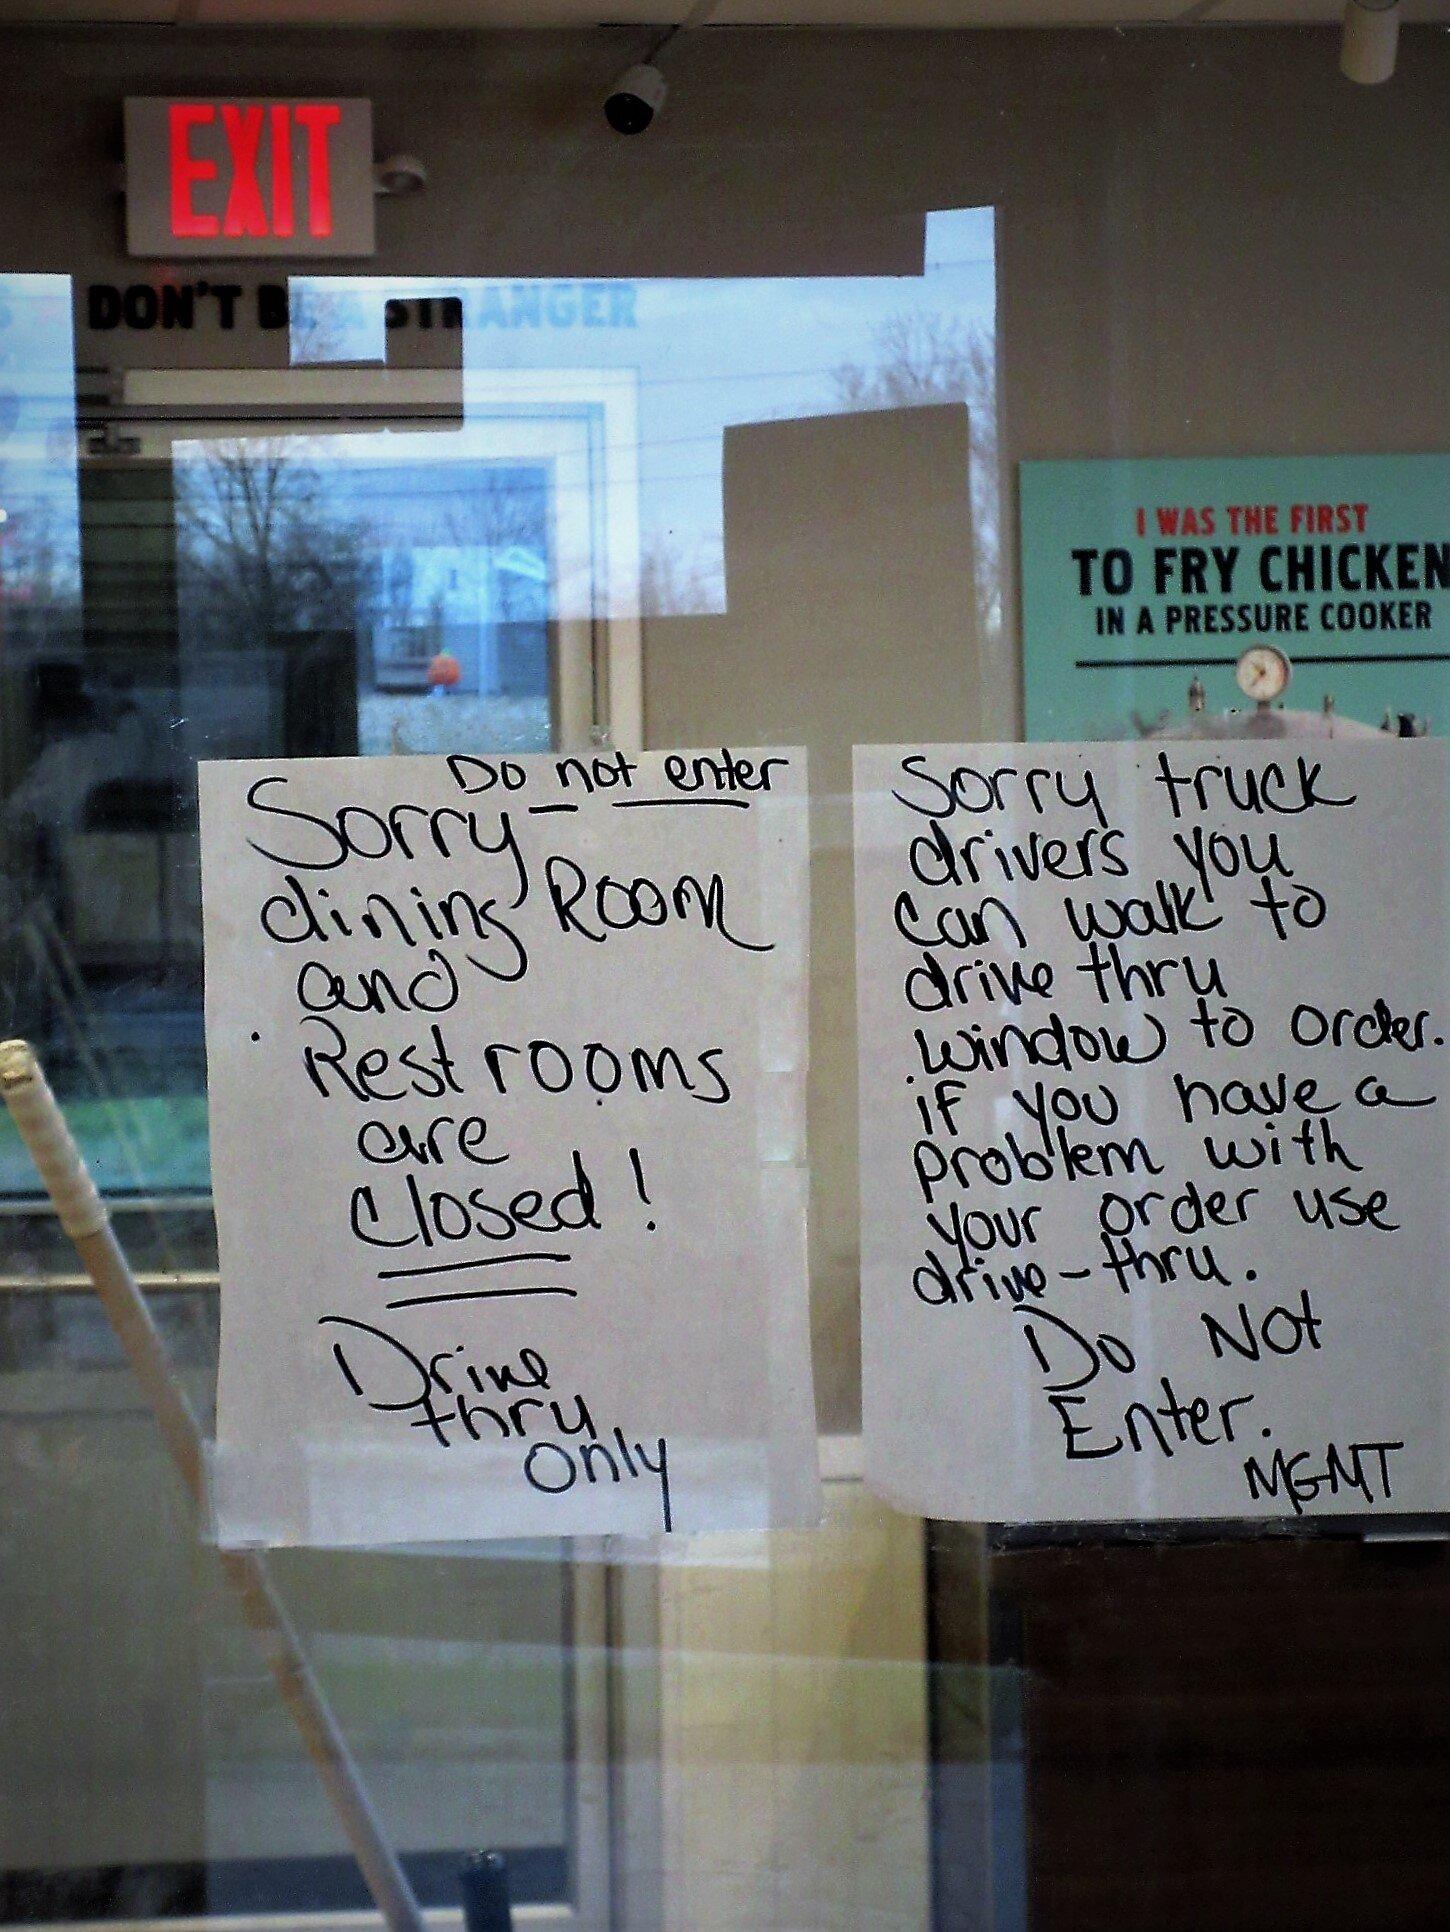 EXIT
DON'T BE A STRANGER
I WAS THE FIRST
TO FRY CHICKEN
IN A PRESSURE COOKER
Do not enter
Sorry
dining Room
and
Restrooms
are
closed!
Drive
thru
only
Sorry truck
drivers you
can walk to
drive thru
window to order.
if you have a
problem with
your order use
drive-thru.
Do Not
Enter.
MGMT